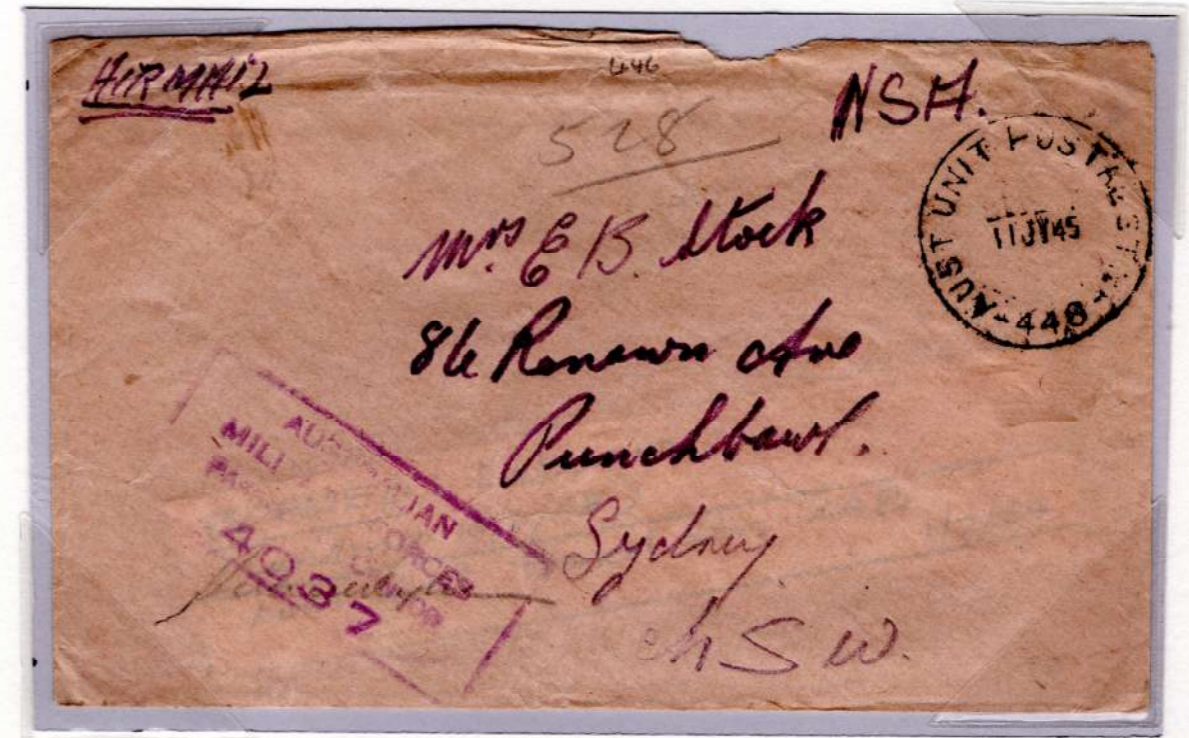 AIRMAIL
446
NSA.
528
AUST UNIT POSTAL STN
11JY45
448
Mrs E B. Stock
86 Renown Ave
Punchbowl.
Sydney
NSW.
AUSTRALIAN
MILITARY FORCES
PASSED BY CENSOR
4037